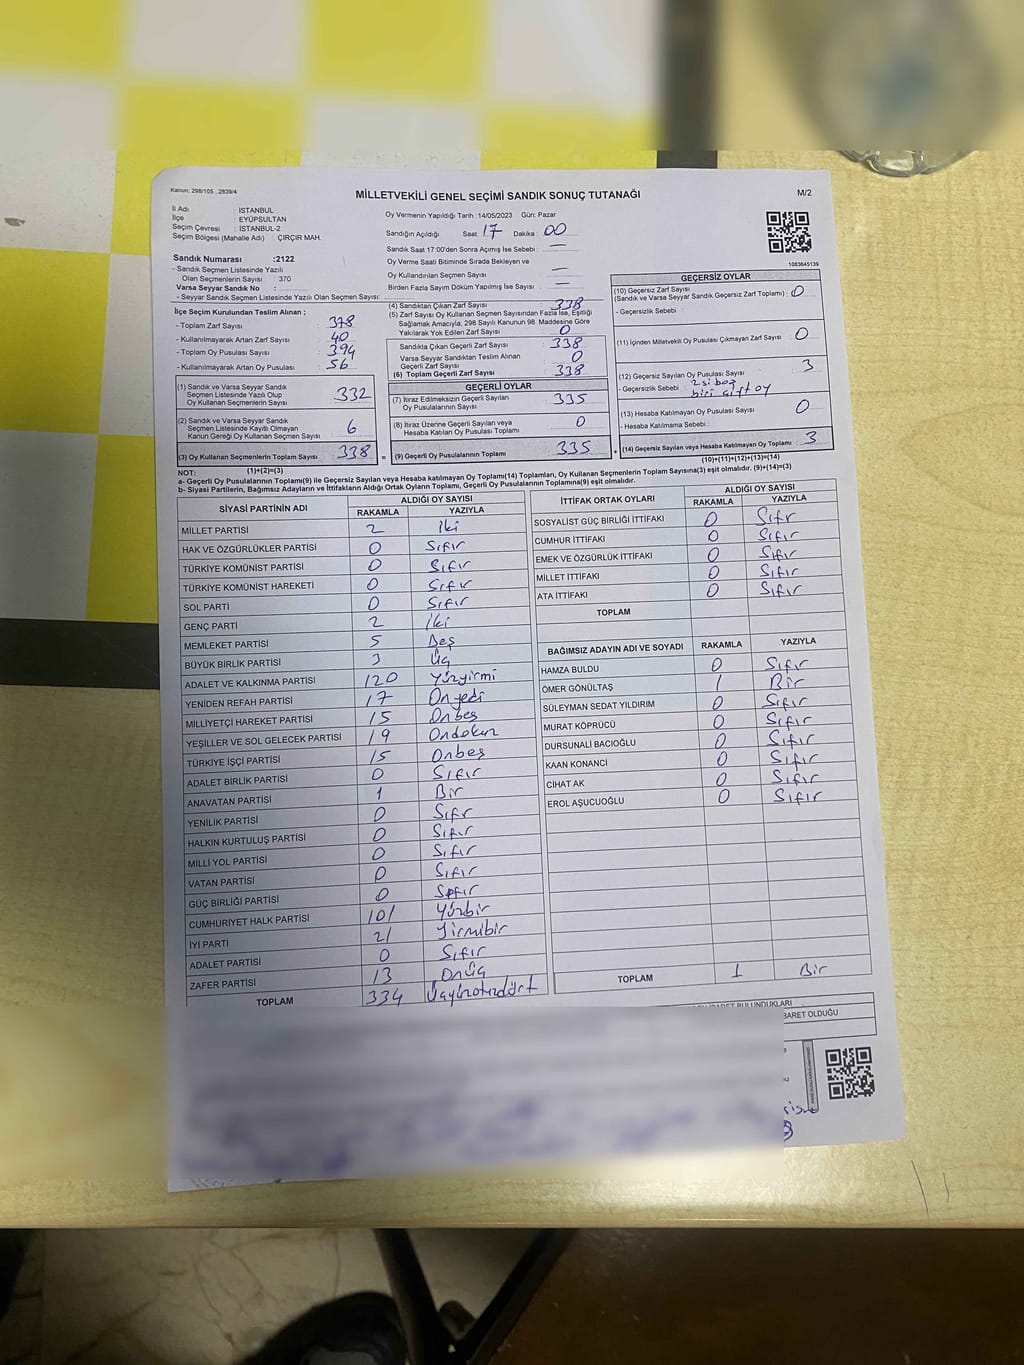 Kanun: 298/105 , 2839/4
MİLLETVEKİLİ GENEL SEÇİMİ SANDIK SONUÇ TUTANAĞI
M/2
İl Adı : İSTANBUL
İlçe : EYÜPSULTAN
Seçim Çevresi : İSTANBUL-2
Seçim Bölgesi (Mahalle Adı) : ÇIRÇIR MAH.
Sandık Numarası :2122
- Sandık Seçmen Listesinde Yazılı
Olan Seçmenlerin Sayısı : 370
Varsa Seyyar Sandık No :
- Seyyar Sandık Seçmen Listesinde Yazılı Olan Seçmen Sayısı:
Oy Vermenin Yapıldığı Tarih :14/05/2023 Gün: Pazar
Sandığın Açıldığı Saat : 17 Dakika : 00
Sandık Saat 17.00'den Sonra Açımış İse Sebebi : —
Oy Verme Saati Bitiminde Sırada Bekleyen ve
Oy Kullandırılan Seçmen Sayısı : —
Birden Fazla Sayım Döküm Yapılmış İse Sayısı : —
1083645139
İlçe Seçim Kurulundan Teslim Alınan ;
- Toplam Zarf Sayısı : 378
- Kullanılmayarak Artan Zarf Sayısı : 40
- Toplam Oy Pusulası Sayısı : 394
- Kullanılmayarak Artan Oy Pusulası : 56
(1) Sandık ve Varsa Seyyar Sandık
Seçmen Listesinde Yazılı Olup
Oy Kullanan Seçmenlerin Sayısı 332
(2) Sandık ve Varsa Seyyar Sandık
Seçmen Listesinde Kayıtlı Olmayan
Kanun Gereği Oy Kullanan Seçmen Sayısı 6
(3) Oy Kullanan Seçmenlerin Toplam Sayısı 338 =
(1)+(2)=(3)
(4) Sandıktan Çıkan Zarf Sayısı 338
(5) Zarf Sayısı Oy Kullanan Seçmen Sayısından Fazla İse, Eşitliği
Sağlamak Amacıyla, 298 Sayılı Kanunun 98. Maddesine Göre
Yakılarak Yok Edilen Zarf Sayısı 0
Sandıkta Çıkan Geçerli Zarf Sayısı : 338
Varsa Seyyar Sandıktan Teslim Alınan
Geçerli Zarf Sayısı : 0
(6) Toplam Geçerli Zarf Sayısı : 338
GEÇERLİ OYLAR
(7) İtiraz Edilmeksizin Geçerli Sayılan
Oy Pusulalarının Sayısı 335
(8) İtiraz Üzerine Geçerli Sayılan veya
Hesaba Katılan Oy Pusulası Toplamı 0
(9) Geçerli Oy Pusulalarının Toplamı 335 +
GEÇERSİZ OYLAR
(10) Geçersiz Zarf Sayısı
(Sandık ve Varsa Seyyar Sandık Geçersiz Zarf Toplamı) : 0
- Geçersizlik Sebebi :
(11) İçinden Milletvekili Oy Pusulası Çıkmayan Zarf Sayısı 0
(12) Geçersiz Sayılan Oy Pusulası Sayısı 3
- Geçersizlik Sebebi : 2si boş
biri çift oy
(13) Hesaba Katılmayan Oy Pusulası Sayısı 0
- Hesaba Katılmama Sebebi :
(14) Geçersiz Sayılan veya Hesaba Katılmayan Oy Toplamı 3
(10)+(11)+(12)+(13)=(14)
NOT:
a- Geçerli Oy Pusulalarının Toplamı(9) ile Geçersiz Sayılan veya Hesaba Katılmayan Oy Toplamı(14) Toplamları, Oy Kullanan Seçmenlerin Toplam Sayısına(3) eşit olmalıdır. (9)+(14)=(3)
b- Siyasi Partilerin, Bağımsız Adayların ve İttifakların Aldığı Ortak Oyların Toplamı, Geçerli Oy Pusulalarının Toplamına(9) eşit olmalıdır.
SİYASİ PARTİNİN ADI ALDIĞI OY SAYISI
RAKAMLA YAZIYLA
MİLLET PARTİSİ 2 iki
HAK VE ÖZGÜRLÜKLER PARTİSİ 0 Sıfır
TÜRKİYE KOMÜNİST PARTİSİ 0 Sıfır
TÜRKİYE KOMÜNİST HAREKETİ 0 Sıfır
SOL PARTİ 0 Sıfır
GENÇ PARTİ 2 iki
MEMLEKET PARTİSİ 5 Beş
BÜYÜK BİRLİK PARTİSİ 3 Üç
ADALET VE KALKINMA PARTİSİ 120 Yüzyirmi
YENİDEN REFAH PARTİSİ 17 Onyedi
MİLLİYETÇİ HAREKET PARTİSİ 15 Onbeş
YEŞİLLER VE SOL GELECEK PARTİSİ 19 Ondokuz
TÜRKİYE İŞÇİ PARTİSİ 15 Onbeş
ADALET BİRLİK PARTİSİ 0 Sıfır
ANAVATAN PARTİSİ 1 Bir
YENİLİK PARTİSİ 0 Sıfır
HALKIN KURTULUŞ PARTİSİ 0 Sıfır
MİLLİ YOL PARTİSİ 0 Sıfır
VATAN PARTİSİ 0 Sıfır
GÜÇ BİRLİĞİ PARTİSİ 0 Sıfır
CUMHURİYET HALK PARTİSİ 101 Yüzbir
İYİ PARTİ 21 Yirmibir
ADALET PARTİSİ 0 Sıfır
ZAFER PARTİSİ 13 Onüç
TOPLAM 334 Üçyüzotuzdört
İTTİFAK ORTAK OYLARI ALDIĞI OY SAYISI
RAKAMLA YAZIYLA
SOSYALİST GÜÇ BİRLİĞİ İTTİFAKI 0 Sıfır
CUMHUR İTTİFAKI 0 Sıfır
EMEK VE ÖZGÜRLÜK İTTİFAKI 0 Sıfır
MİLLET İTTİFAKI 0 Sıfır
ATA İTTİFAKI 0 Sıfır
TOPLAM
BAĞIMSIZ ADAYIN ADI VE SOYADI RAKAMLA YAZIYLA
HAMZA BULDU 0 Sıfır
ÖMER GÖNÜLTAŞ 1 Bir
SÜLEYMAN SEDAT YILDIRIM 0 Sıfır
MURAT KÖPRÜCÜ 0 Sıfır
DURSUNALİ BACIOĞLU 0 Sıfır
KAAN KONANCİ 0 Sıfır
CİHAT AK 0 Sıfır
EROL AŞUCUOĞLU 0 Sıfır
TOPLAM 1 Bir
BULUNDUKLARI
OLDUĞU